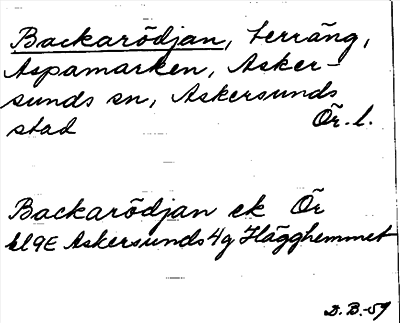 Backarödjan, terräng,
Aspamarken, Asker-
sunds sn, Askersunds
stad Ör. l.
Backarödjan ek Ör
bl 9E Askersund 4g Hägghemmet
D.B.-59